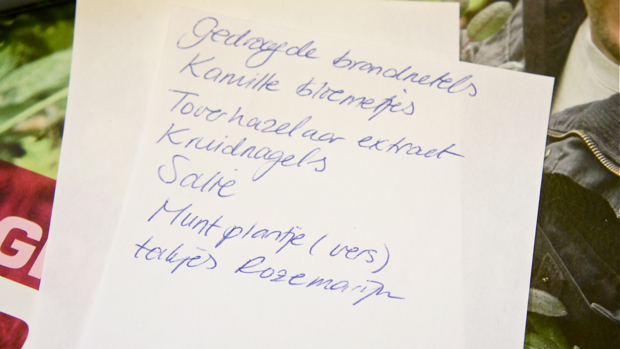 Gedroogde brandnetels
Kamille bloemetjes
Toverhazelaar extract
Kruidnagels
Salie
Munt plantje (vers)
takjes Rozemarijn
G